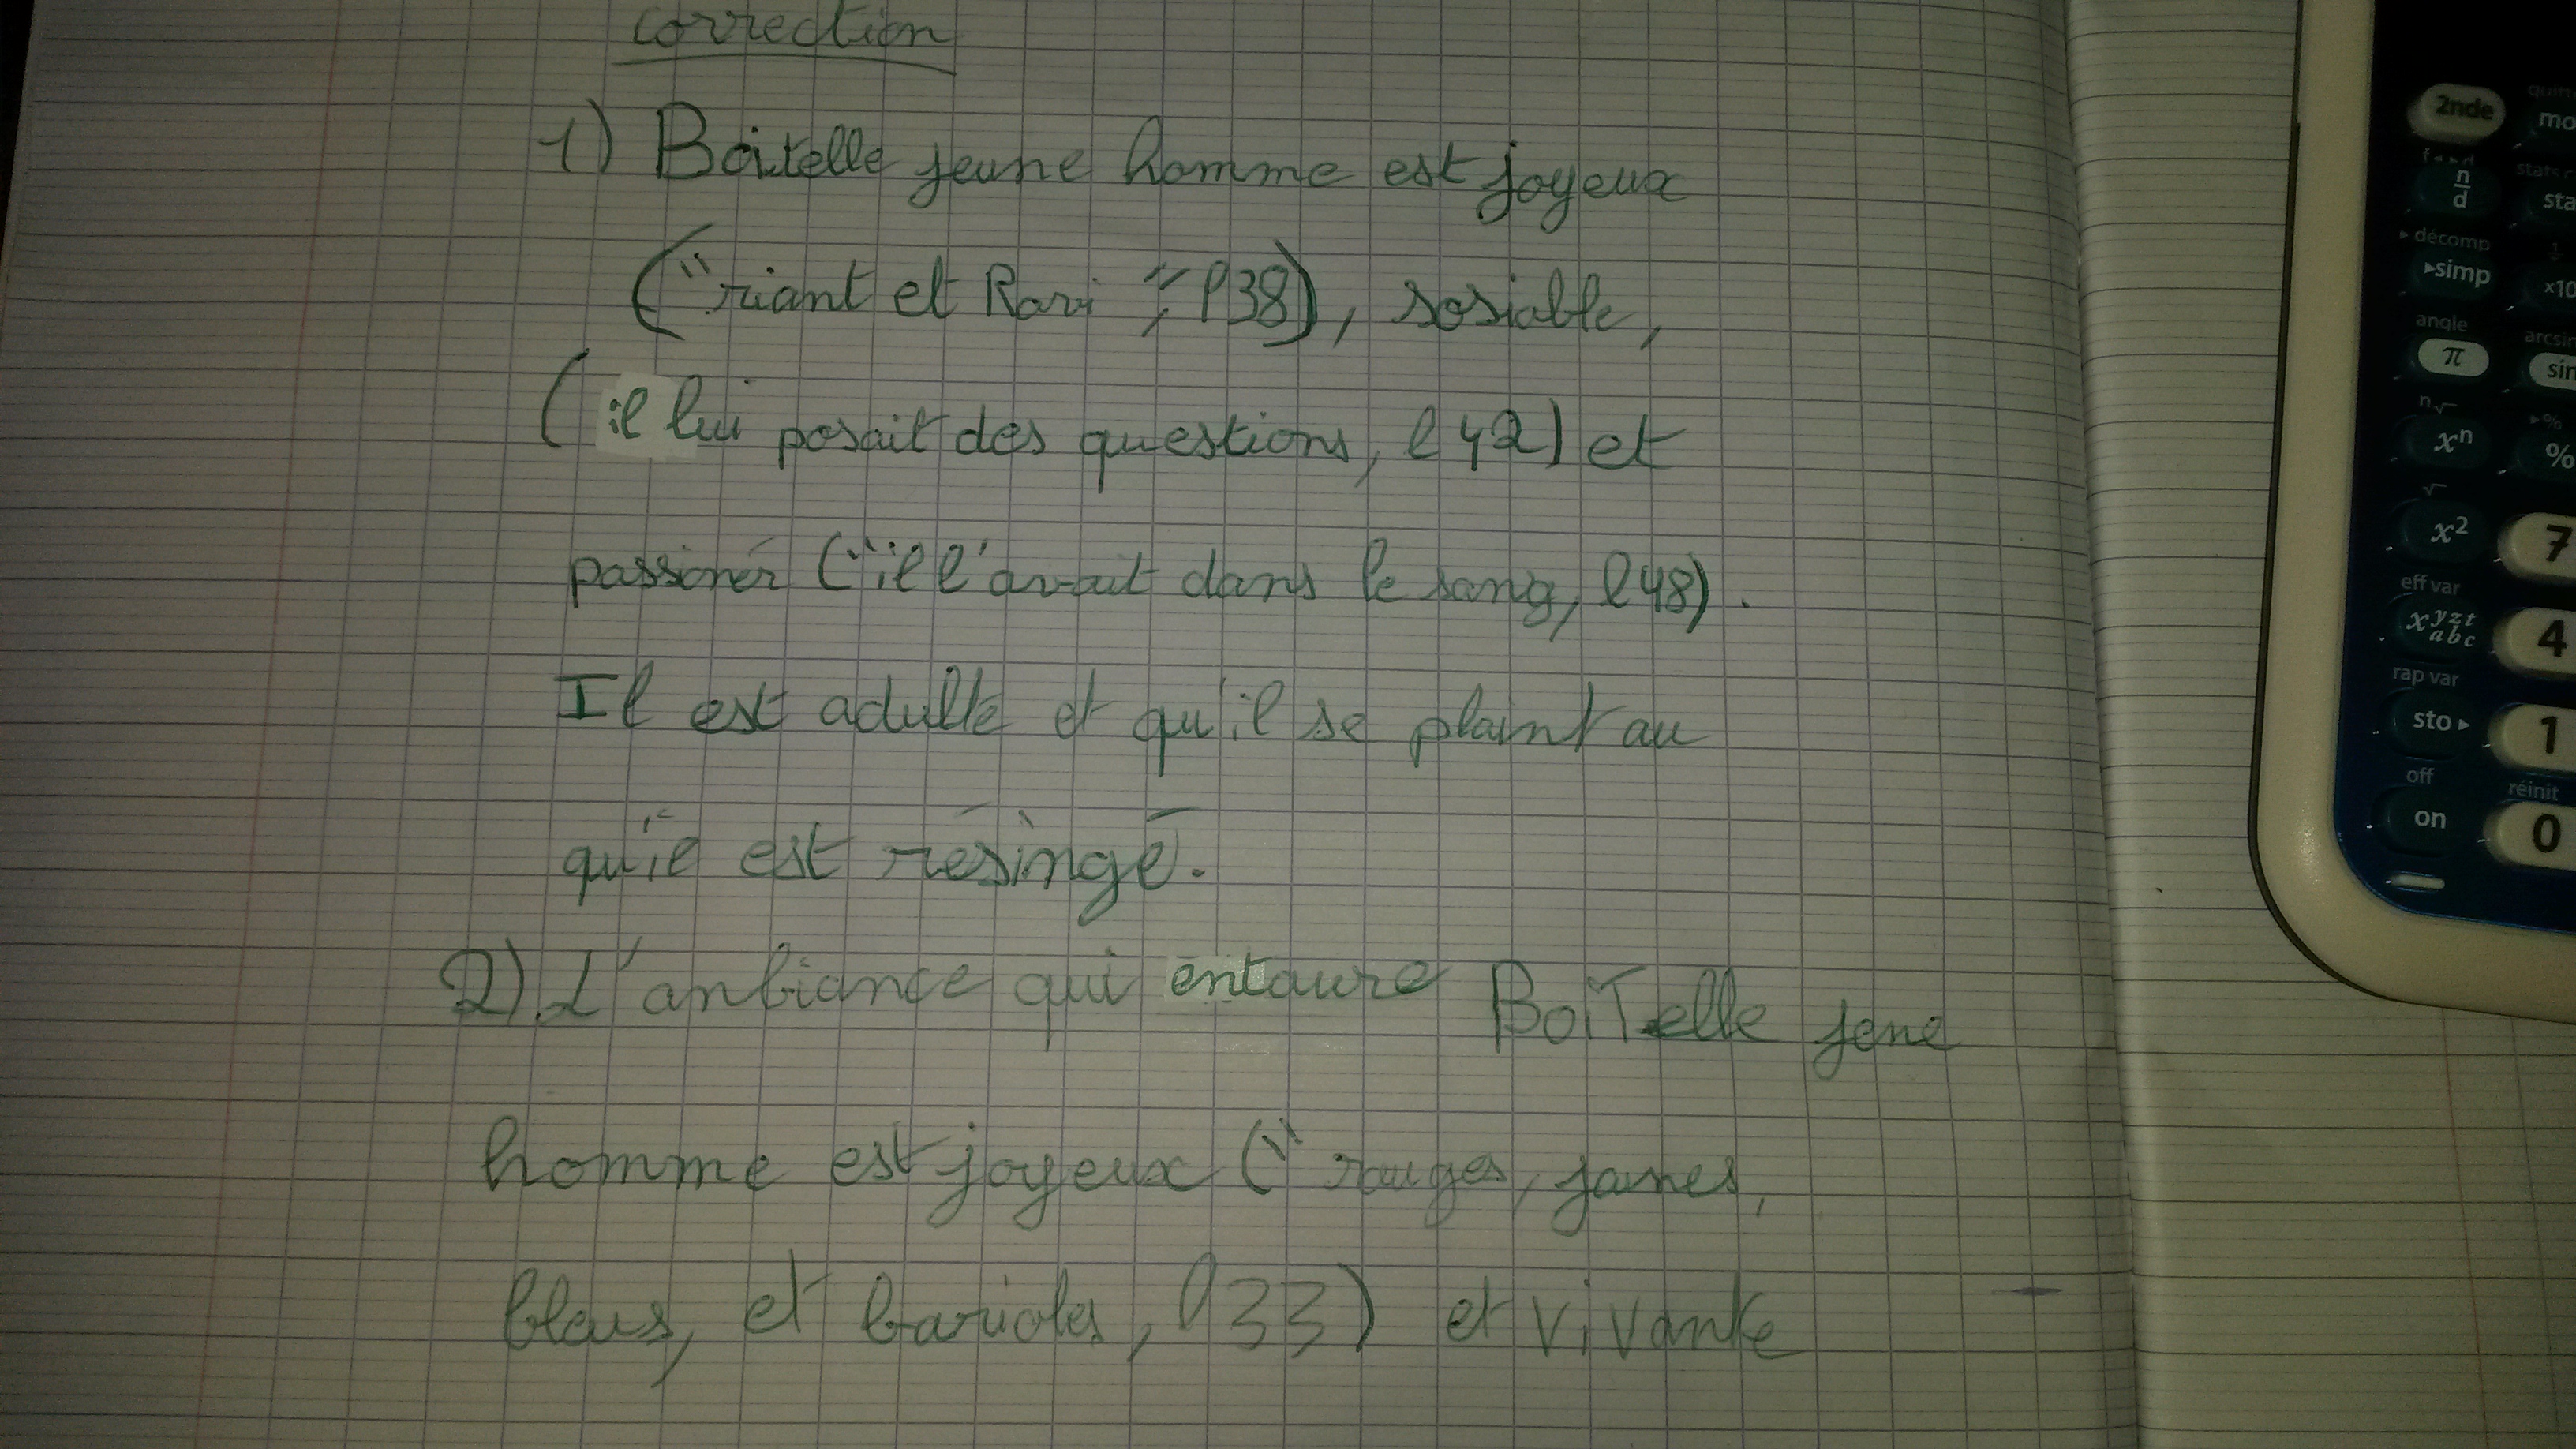 correction
1) Boitelle jeune homme est joyeux
("riant et Ravi", l38), sosiable,
(il lui posait des questions, l 42) et
passionér ("il l'avait dans le sang, l48).
Il est adulte et qu'il se plaint au
qu'il est résingé.
2) L'anbiance qui entoure BoiTelle jene
homme est joyeux ("rouges, jaunes,
bleus, et bariolés, l33) et vivante
2nde
quitter
mo
f◄►d
n
d
stats
sta
►décomp
►simp
x10
angle
π
arcsin
sin
n√
xⁿ
►%
%
√
x²
7
eff var
x yzt
abc
4
rap var
sto►
1
off
on
réinit
0